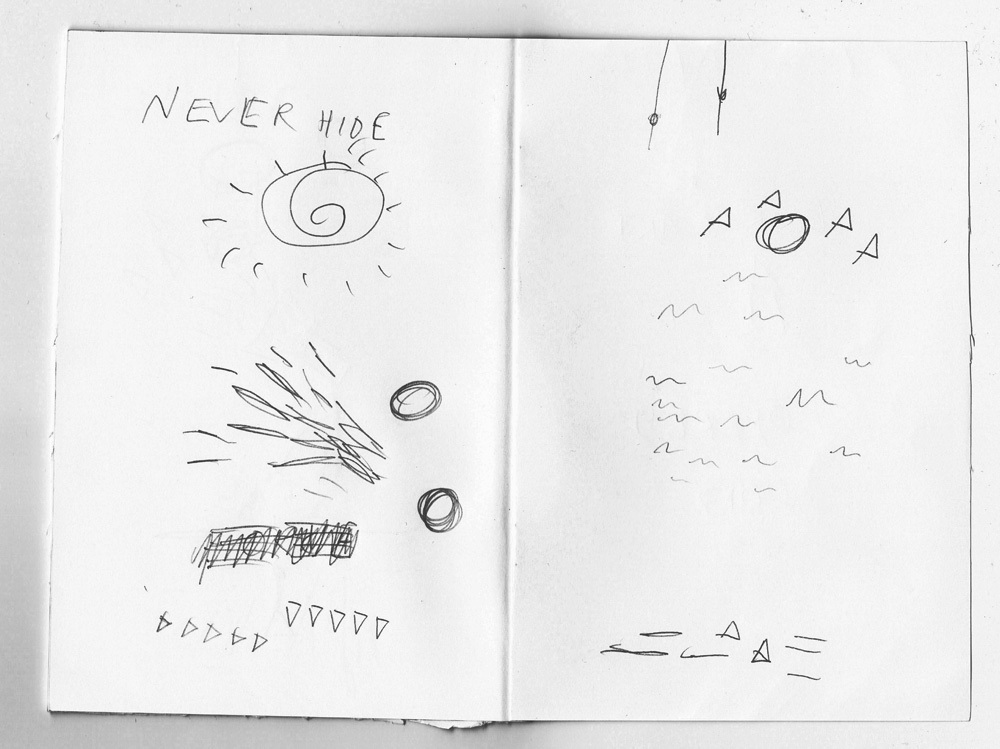 NEVER HIDE